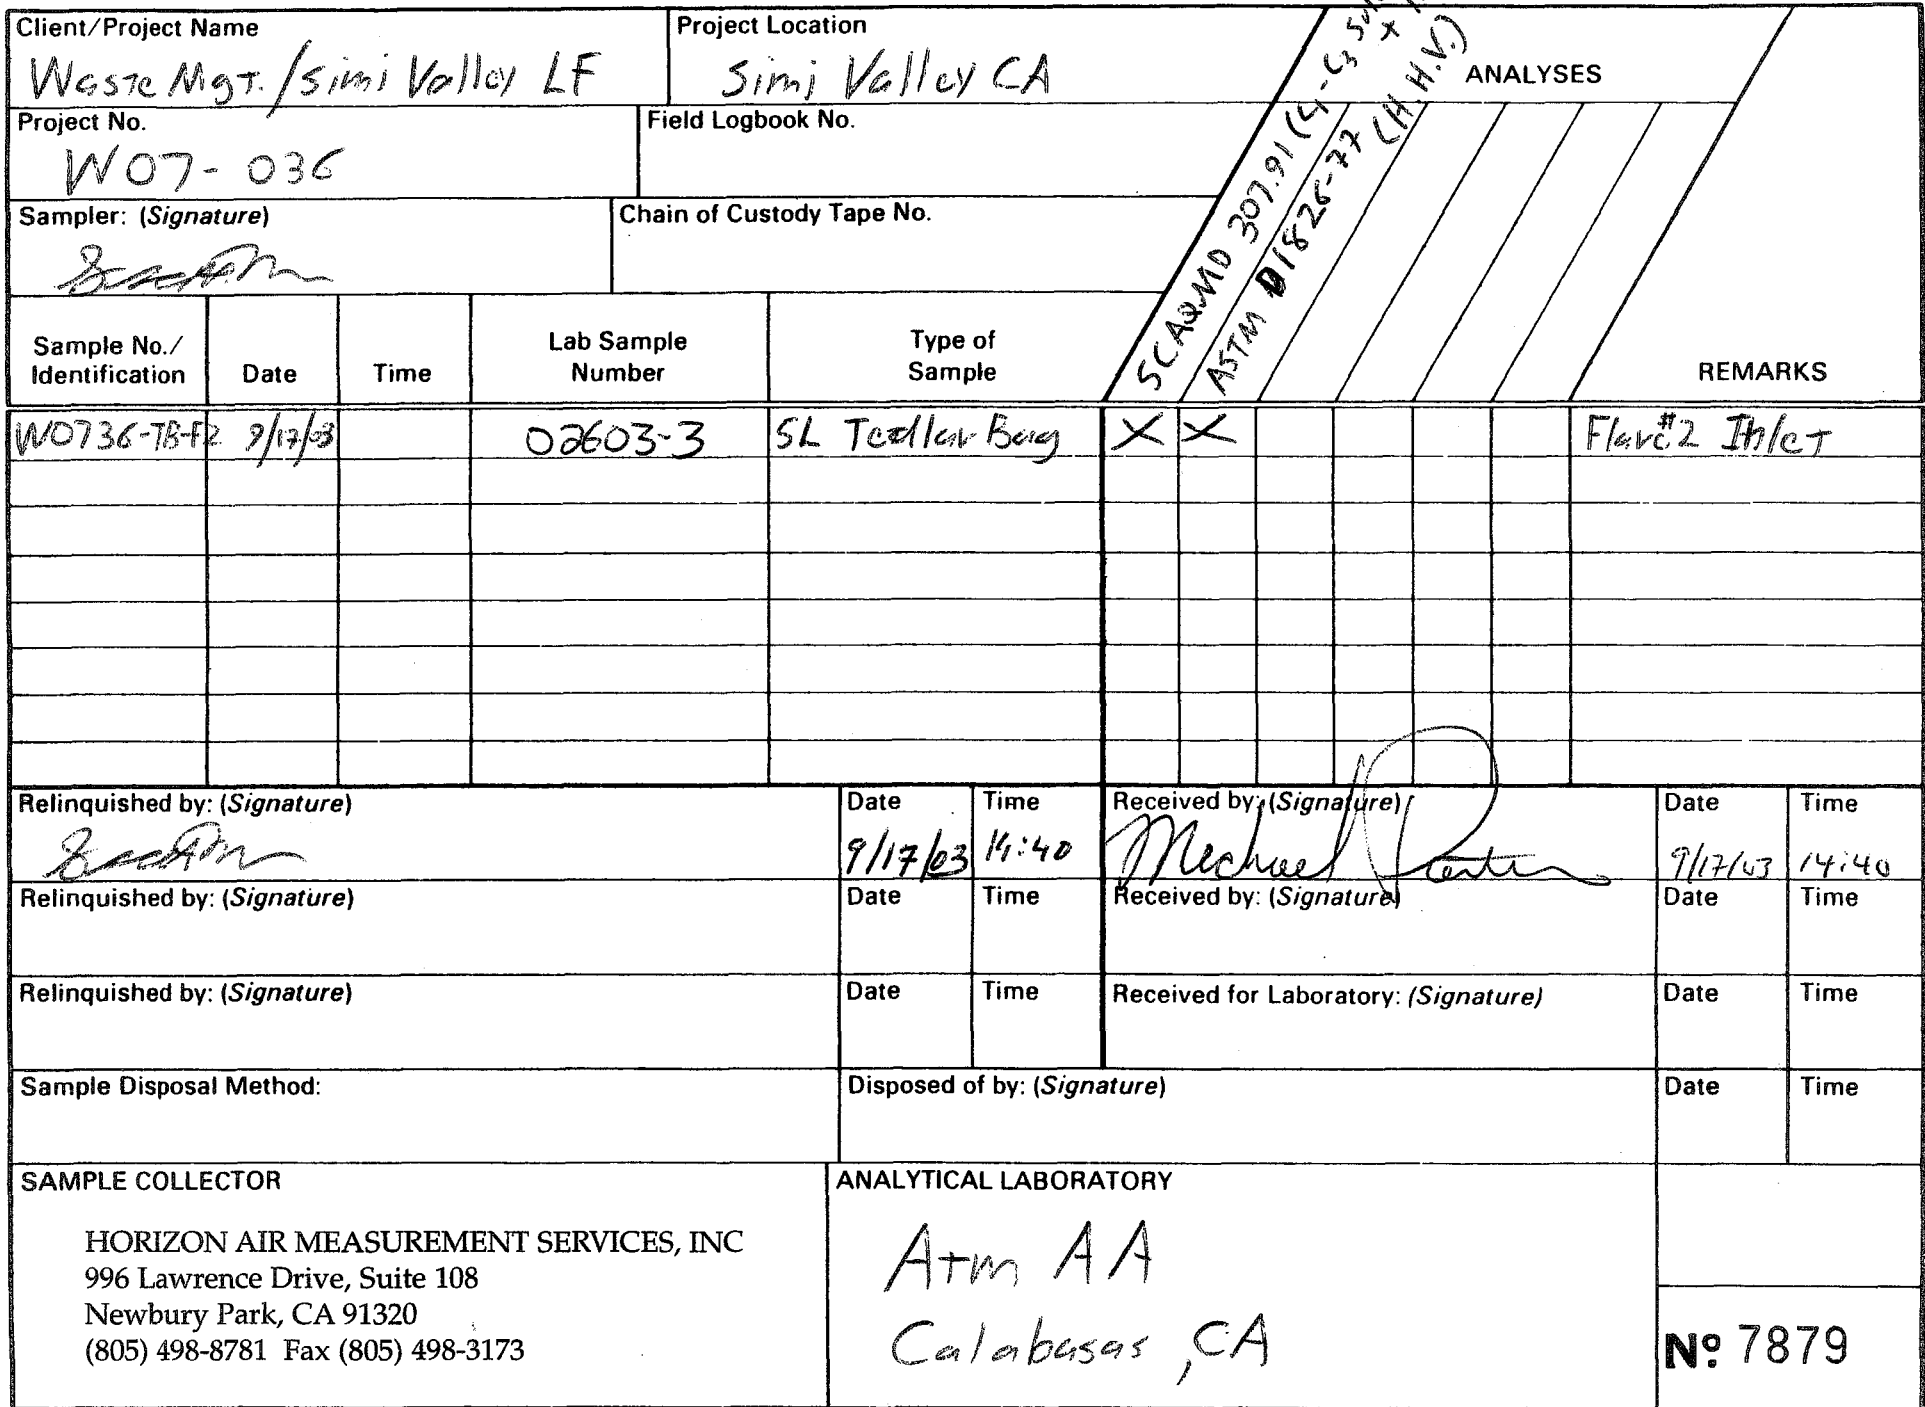 Client/Project Name
Waste Mgt./Simi Valley LF
Project Location
Simi Valley CA
ANALYSES
SCAQMD 307.91 (C1-C3
ASTM D1826-77 (H.H.V.)
Project No.
W07-036
Field Logbook No.
Sampler: (Signature)
Chain of Custody Tape No.
Sample No./ Identification
Date
Time
Lab Sample Number
Type of Sample
REMARKS
W0736-TB-F2 9/17/03 02603-3 5L Tedlar Bag X X Flare #2 Inlet
Relinquished by: (Signature)
Date
9/17/03
Time
14:40
Received by: (Signature)
Michael
Date
9/17/03
Time
14:40
Relinquished by: (Signature)
Date
Time
Received by: (Signature)
Date
Time
Relinquished by: (Signature)
Date
Time
Received for Laboratory: (Signature)
Date
Time
Sample Disposal Method:
Disposed of by: (Signature)
Date
Time
SAMPLE COLLECTOR
HORIZON AIR MEASUREMENT SERVICES, INC
996 Lawrence Drive, Suite 108
Newbury Park, CA 91320
(805) 498-8781 Fax (805) 498-3173
ANALYTICAL LABORATORY
Atm AA
Calabasas, CA
Nº 7879